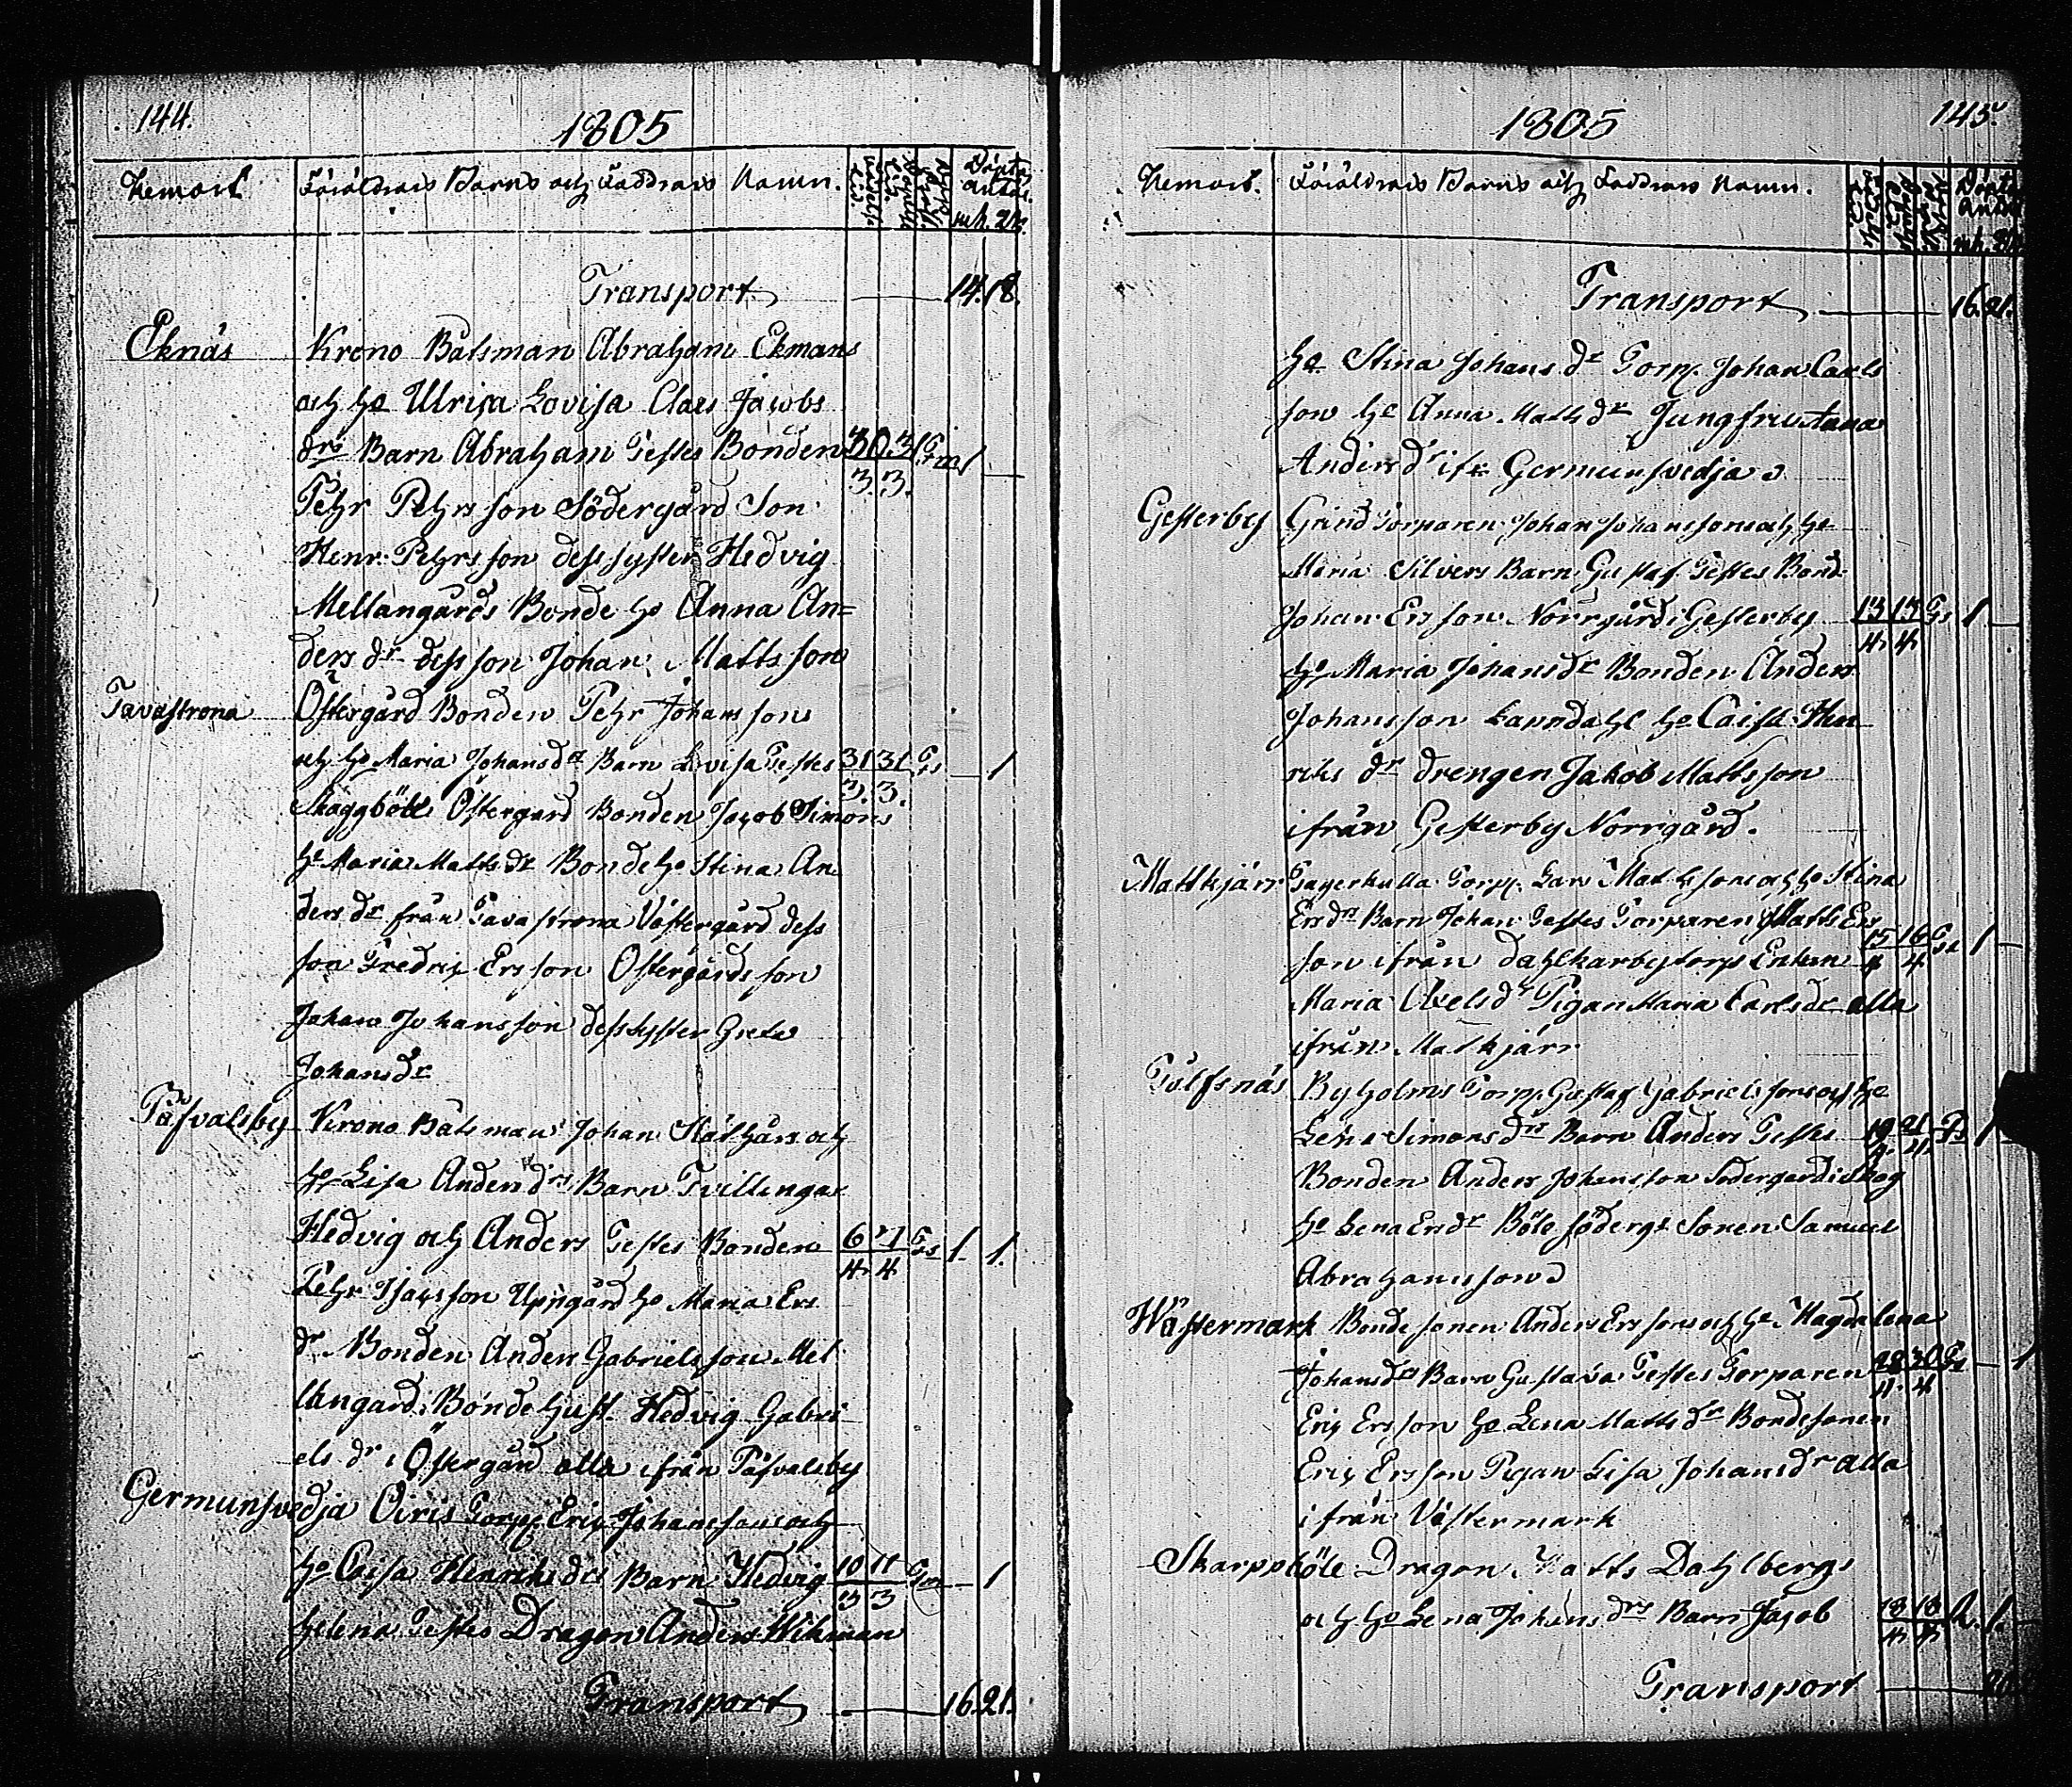 144.
1805
Hemort Föräldrars Barns och Faddrars Namn. Döpta Antal.
mk. qk.
Transport 14. 18.
Eknäs Krono Båtsman Abraham Ekmans
och ho Ulrica Lovisa Claes Jacobs
drs Barn Abraham Testes Bonden 30. 31 1
3. 3.
Pehr Pehrsson Södergård Son
Henr. Pehrsson dess syster Hedvig
Mellangårds Bonde ho Anna An=
ders dr dess son Johan Mattsson
Tavastrona Östergård Bonden Pehr Johanssons
och ho Maria Johansdrs Barn Lovisa Testes 31 31 1
3. 3.
Skaggböle Östergård Bonden Jacob Simons
ho Maria Mattsdr Bonde ho Stina An
ders dr från Tavastrona Västergård dess
son Fredric Ersson Östergårds son
Johan Johansson dess syster Greta
Johansdr
Påfvalsby Krono Båtsman Johan och
ho Lisa Anders drs Barn Tvillingar
Hedvig och Anders Testes Bonden 6 7 1. 1.
4. 4
Pehr Isacsson Uppgård ho Maria Ers
dr Bonden Anders Gabrielsson Mel
langård Bonde hust. Hedvig Gabri
els dr i Östergård alla ifrån Påfvalsby
Germunsvedja Torp. Eric Johanssons och
ho Caisa Henrichs drs Barn Hedvig 10 11 1
3 3
Helena Testes Dragon Anders Wikman
Transport 16. 21.
1805
145.
Hemort. Föräldrars Barns och Faddrars Namn. Döpta Antal
mk. qk.
Transport 16. 21.
ho Stina Johans dr Torp. Johan Carls
son ho Anna Matts dr Jungfru
Anders dr ifr Germunsvedja
Gesterby Torparen Johan Johanssons och ho
Maria Silvers Barn Gustaf Testes Bond.
Johan Ersson Norrgård i Gesterby 13 13 1
4. 4.
ho Maria Johansdr Bonden Anders
Johansson ho Caisa Hen
richs dr drengen Jakob Mattsson
ifrån Gesterby Norrgård.
Mattkjärr Torp. Lars Mathssons och ho Stina
Ersdrs Barn Johan Testes Torparen Matts Ers
15 16 1
son ifrån Dahlkarbytorp Enkan 4 4
Maria Axelsdr Pigan Maria Carlsdr alla
ifrån Matkjärr
Byholms Torp. Gustaf Gabrielssons och ho
Lena Simons drs Barn Anders Testes 19 21 1
4. 4.
Bonden Anders Johansson Södergård i Skog
ho Lena Ersdr Böle Söderg. Sonen Samuel
Abrahamsson
Wästermark Bondesonen Anders Erssons och ho Magdalena
Johansdrs Barn Gustava Testes Torparen 28 30 1
4. 4
Eric Ersson ho Lena Matts dr Bondesonen
Eric Ersson Pigan Lisa Johansdr alla
ifrån Västermark
Skarpböle Dragon Matts Dahlbergs
och ho Lena Johans drs Barn Jacob 18 18 1.
4. 4.
Transport